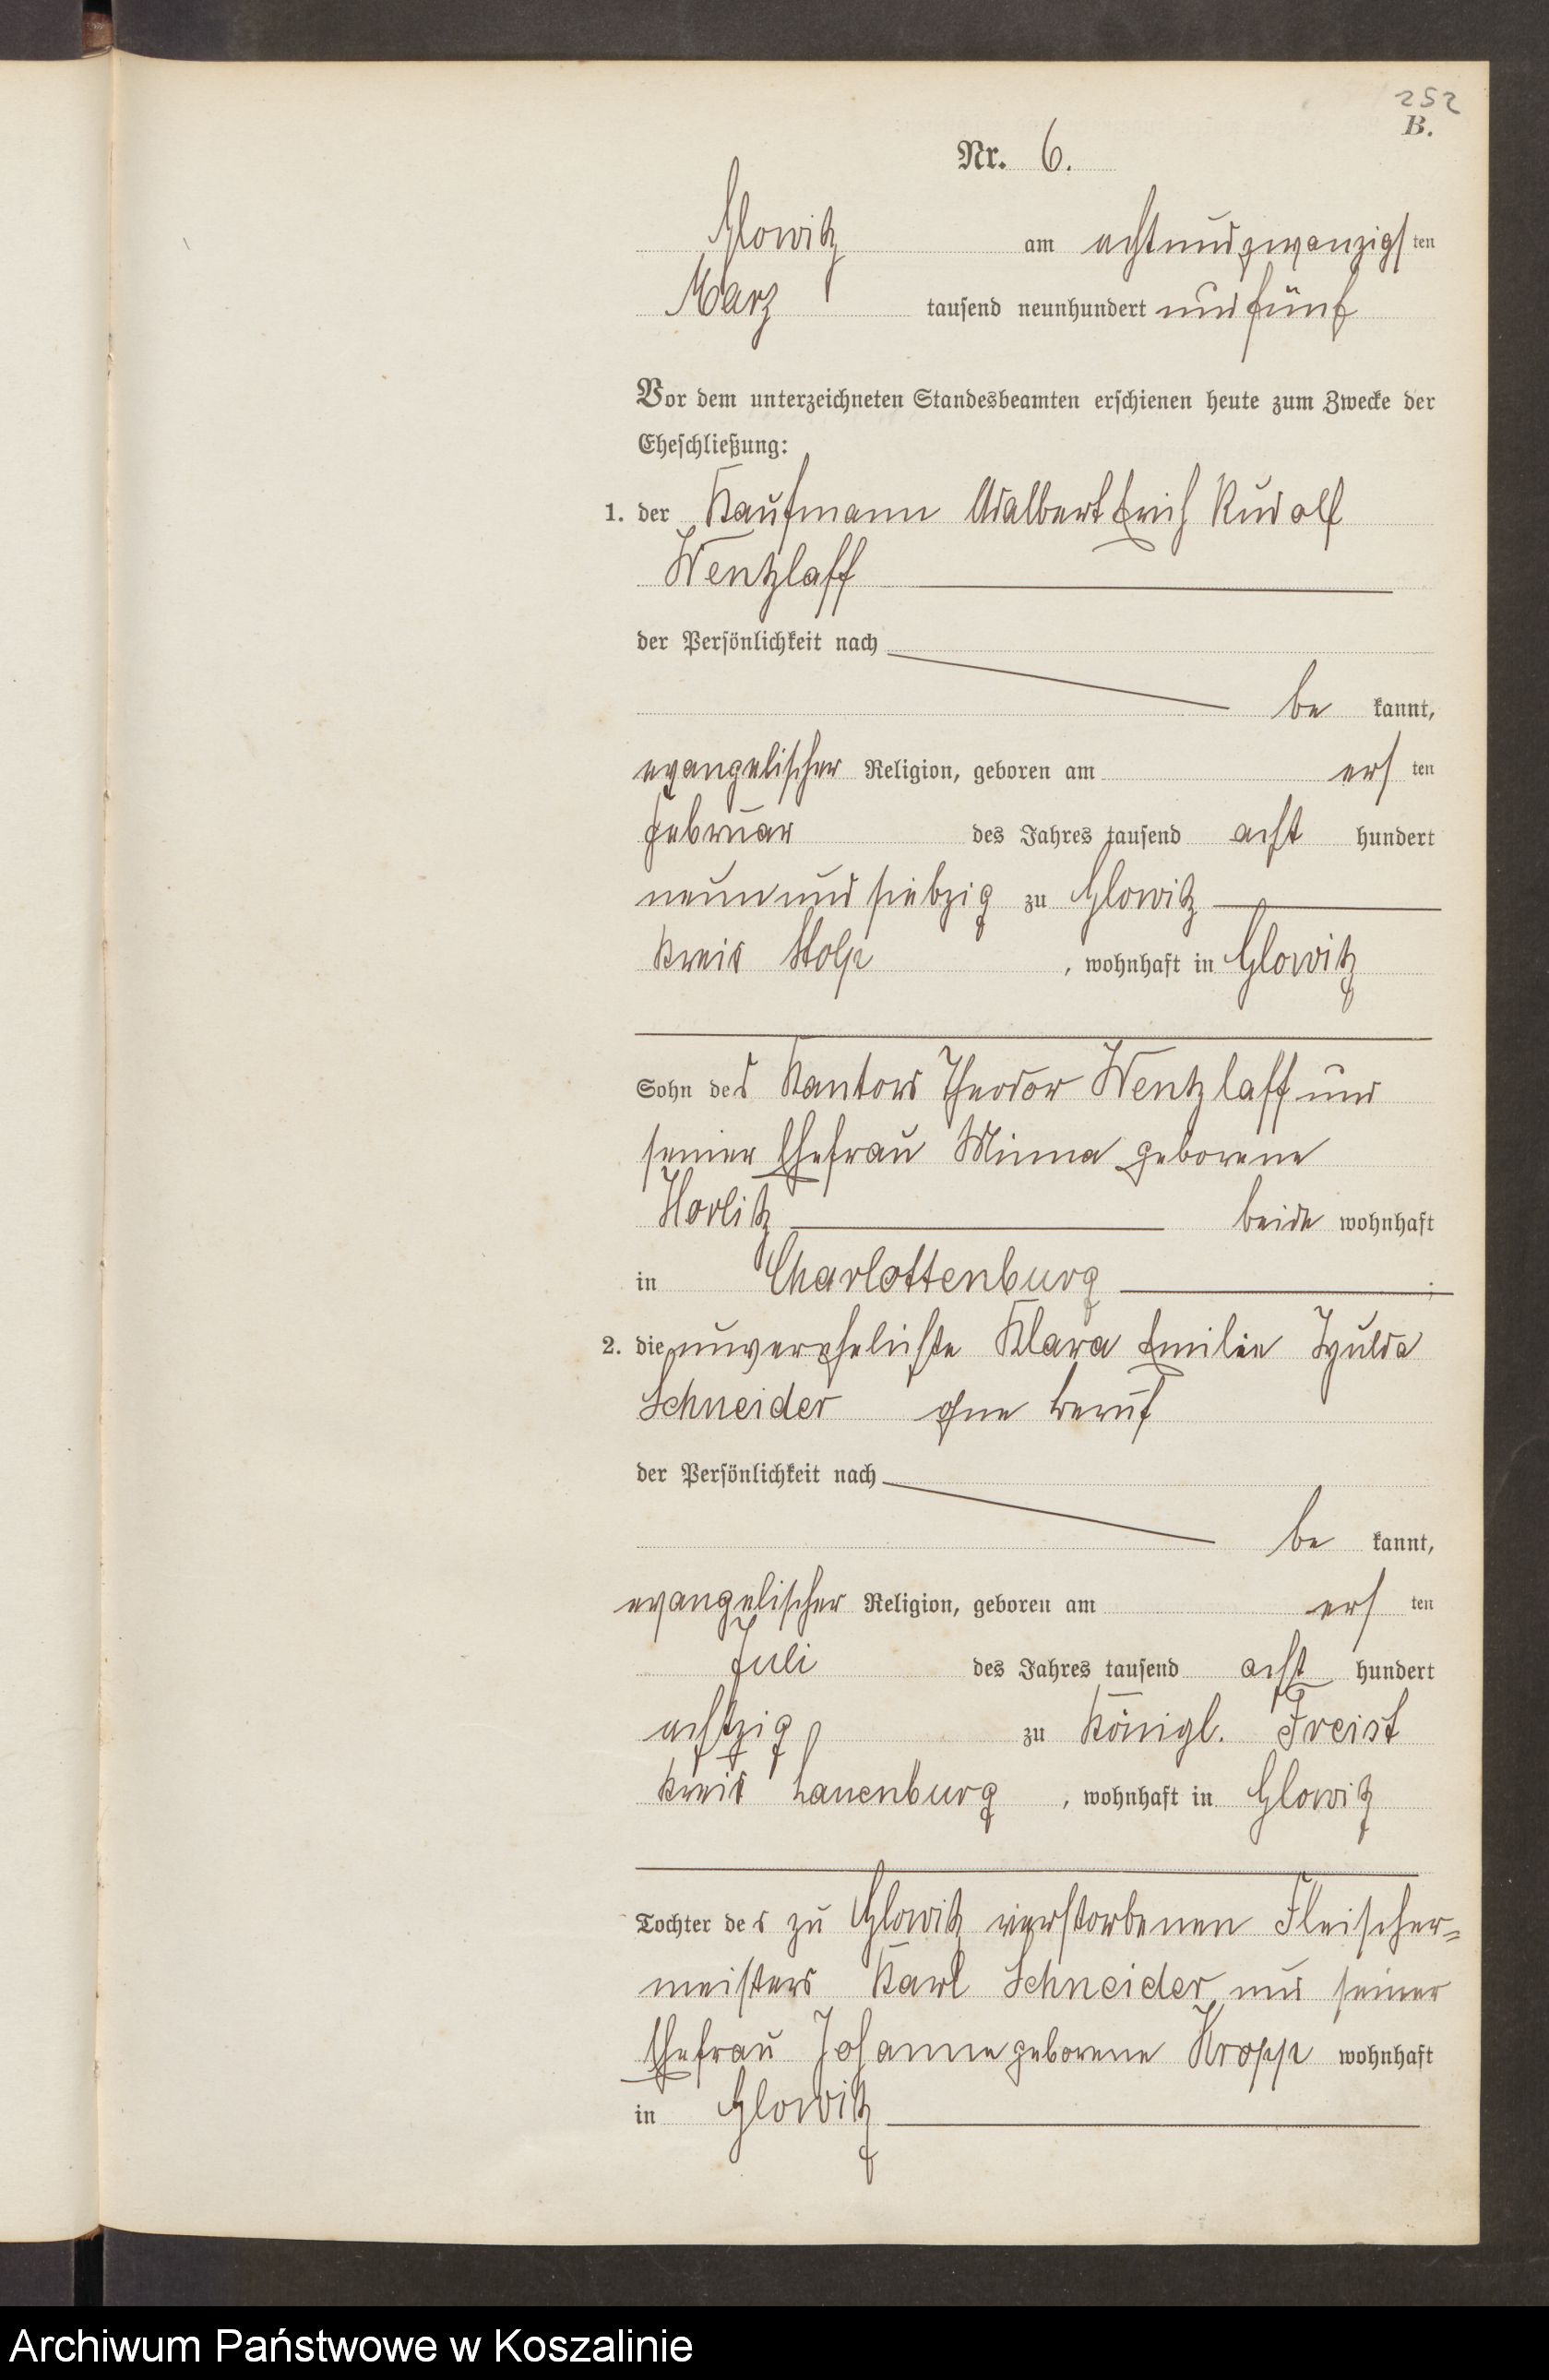 252
B.
Nr. 6.
Glowitz am achtundzwanzigsten
März tausend neunhundert und fünf
Vor dem unterzeichneten Standesbeamten erschienen heute zum Zwecke der
Eheschließung:
1. der Kaufmann Adalbert Erich Rudolf
Wentzlaff
der Persönlichkeit nach
be kannt,
evangelischer Religion, geboren am ersten
Februar des Jahres tausend acht hundert
neunundsiebzig zu Glowitz
Kreis Stolp, wohnhaft in Glowitz
Sohn des Kantors Theodor Wentzlaff und
seiner Ehefrau Minna geborene
Horlitz beide wohnhaft
in Charlottenburg;
2. die unverehelichte Klara Emilie Hulda
Schneider ohne Beruf
der Persönlichkeit nach
be kannt,
evangelischer Religion, geboren am ersten
Juli des Jahres tausend acht hundert
achtzig zu Königl. Freist
Kreis Lauenburg, wohnhaft in Glowitz
Tochter des zu Glowitz verstorbenen Fleischer=
meisters Karl Schneider und seiner
Ehefrau Johanne geborene Kropp wohnhaft
in Glowitz
Archiwum Państwowe w Koszalinie